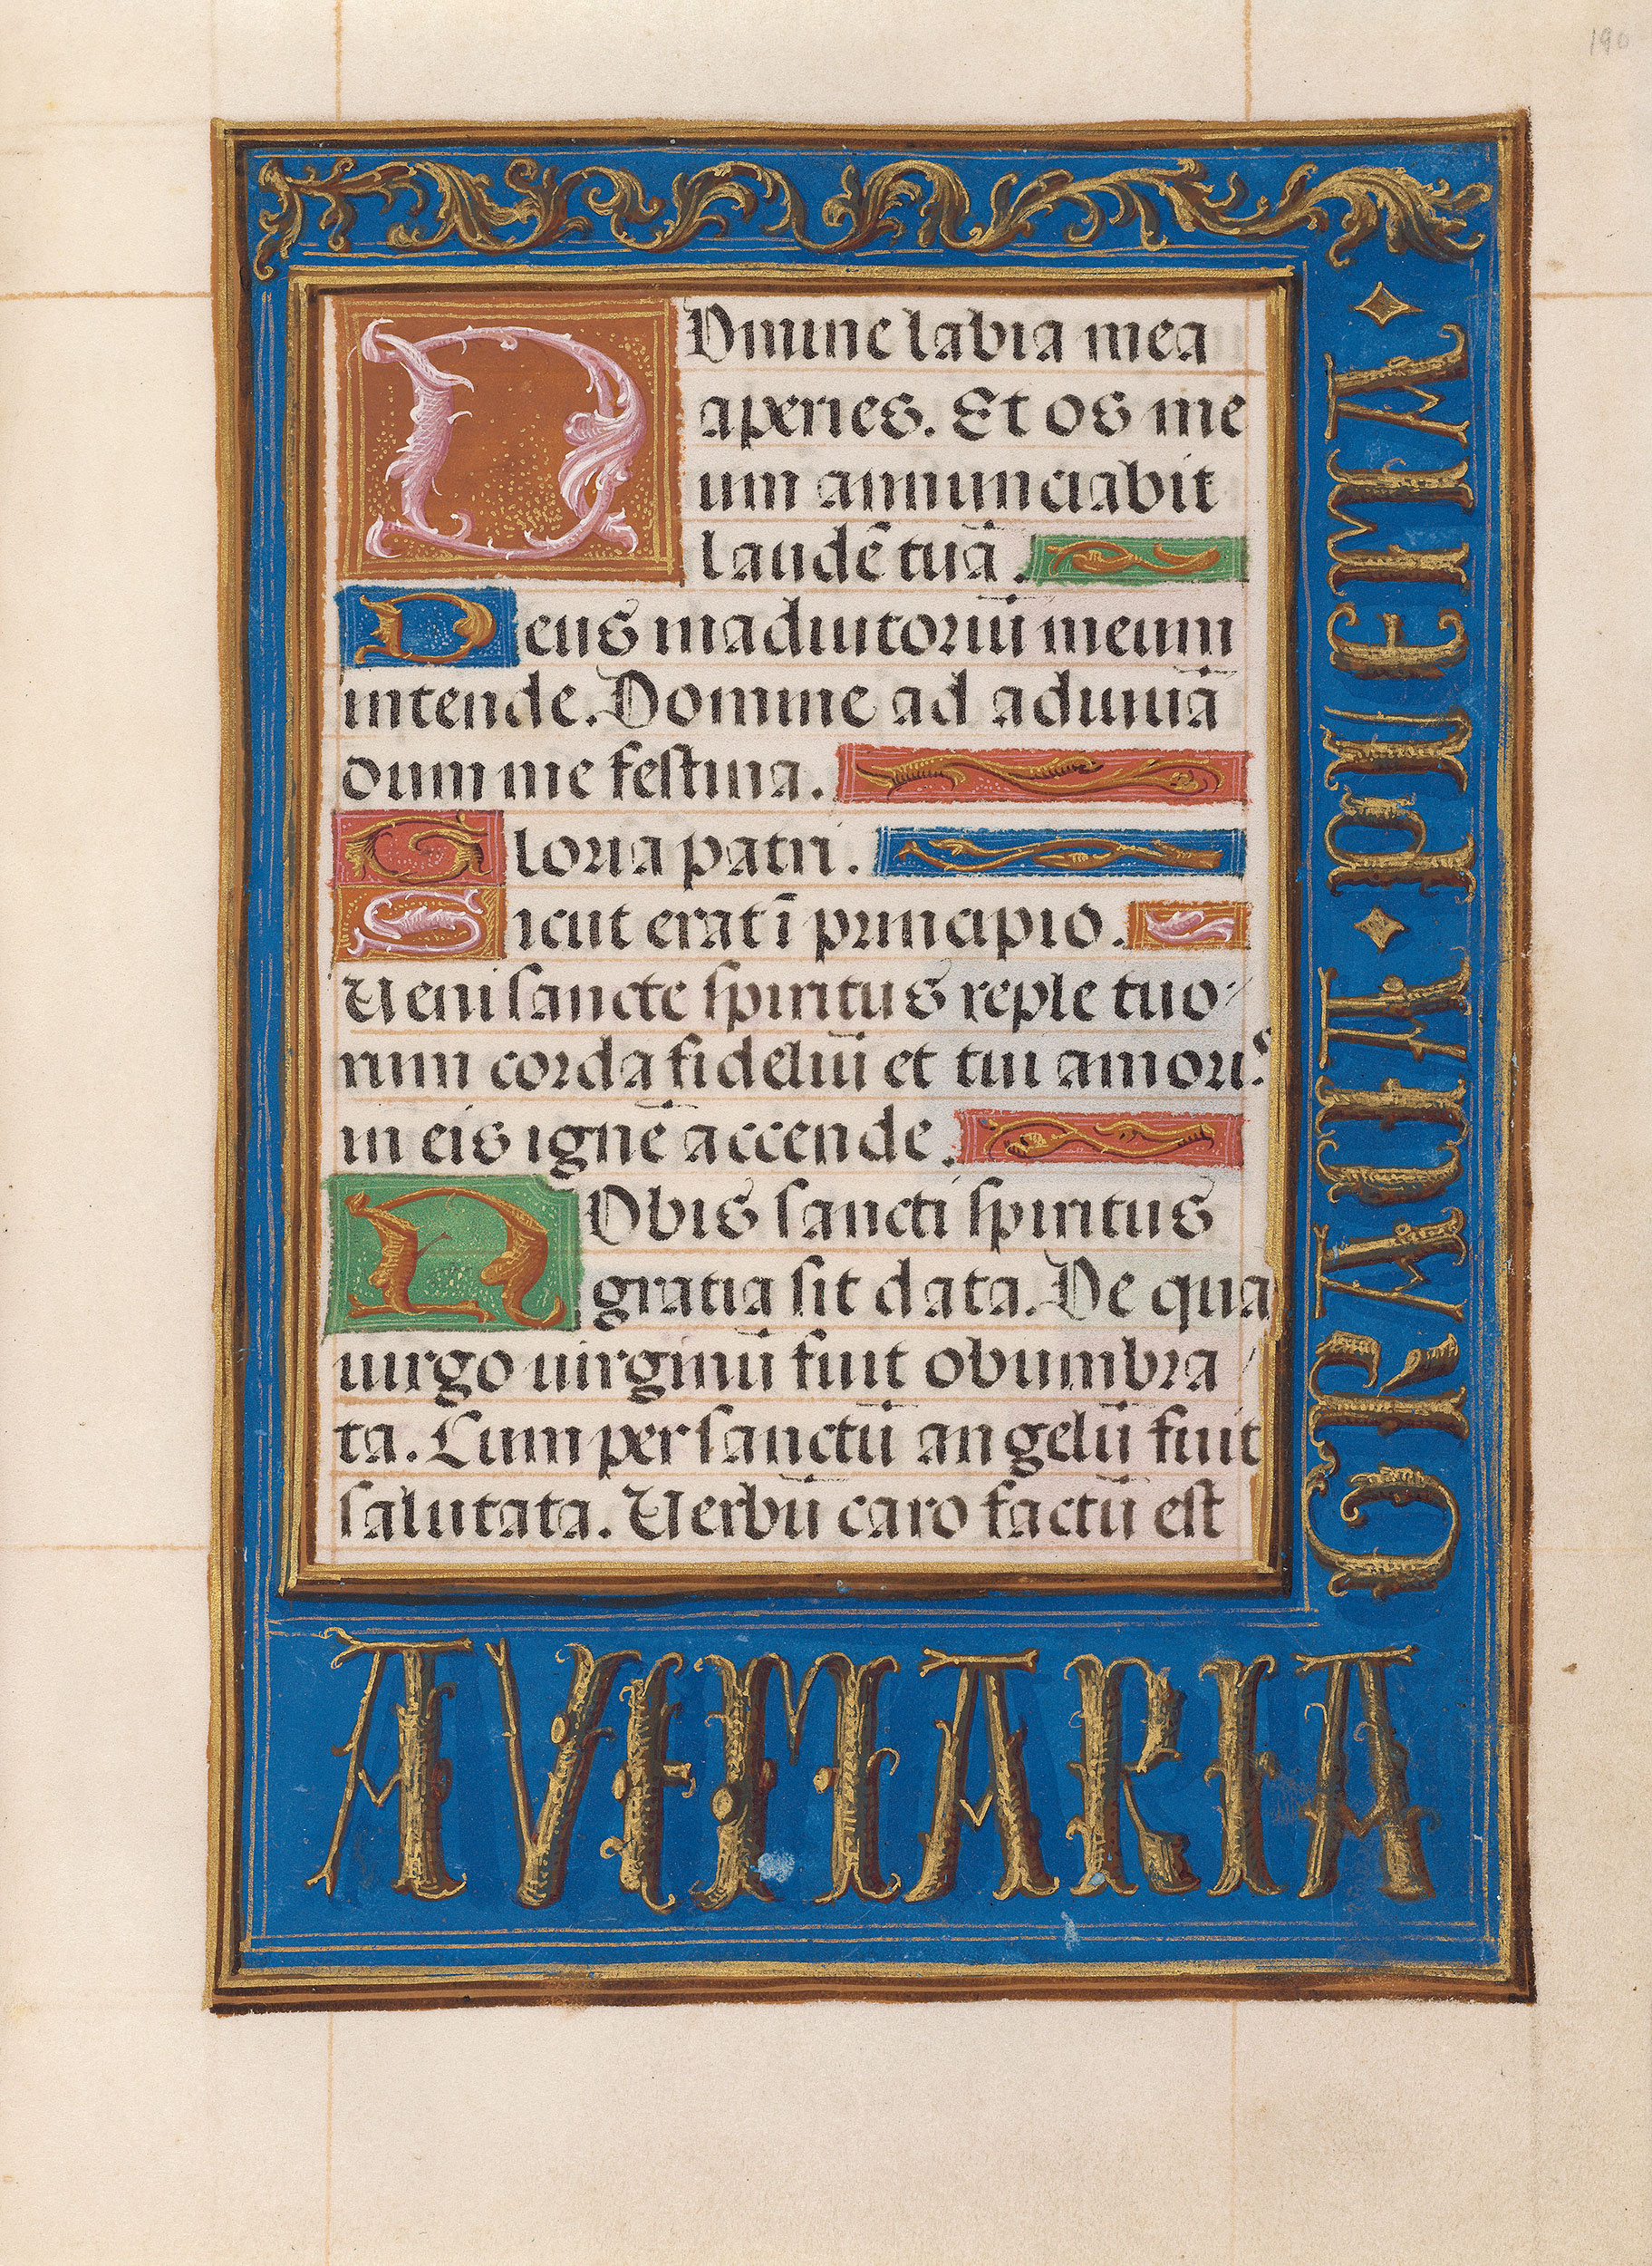 190
DOmine labia mea
aperies. Et os me
um annunciabit
laudē tuā.
Deus in adiutoriū meum
intende. Domine ad adiuuā
dum me festina.
Gloria patri.
Sicut erat ī principio.
Ueni sancte spiritus reple tuo⸗
rum corda fideliū et tui amoris
in eis ignē accende.
NObis sancti spiritus
gratia sit data. De qua
uirgo uirginū fuit obumbra
ta. Cum per sanctū angelū fuit
salutata. Uerbū caro factū est
AVE MARIA
GRACIA PLENA